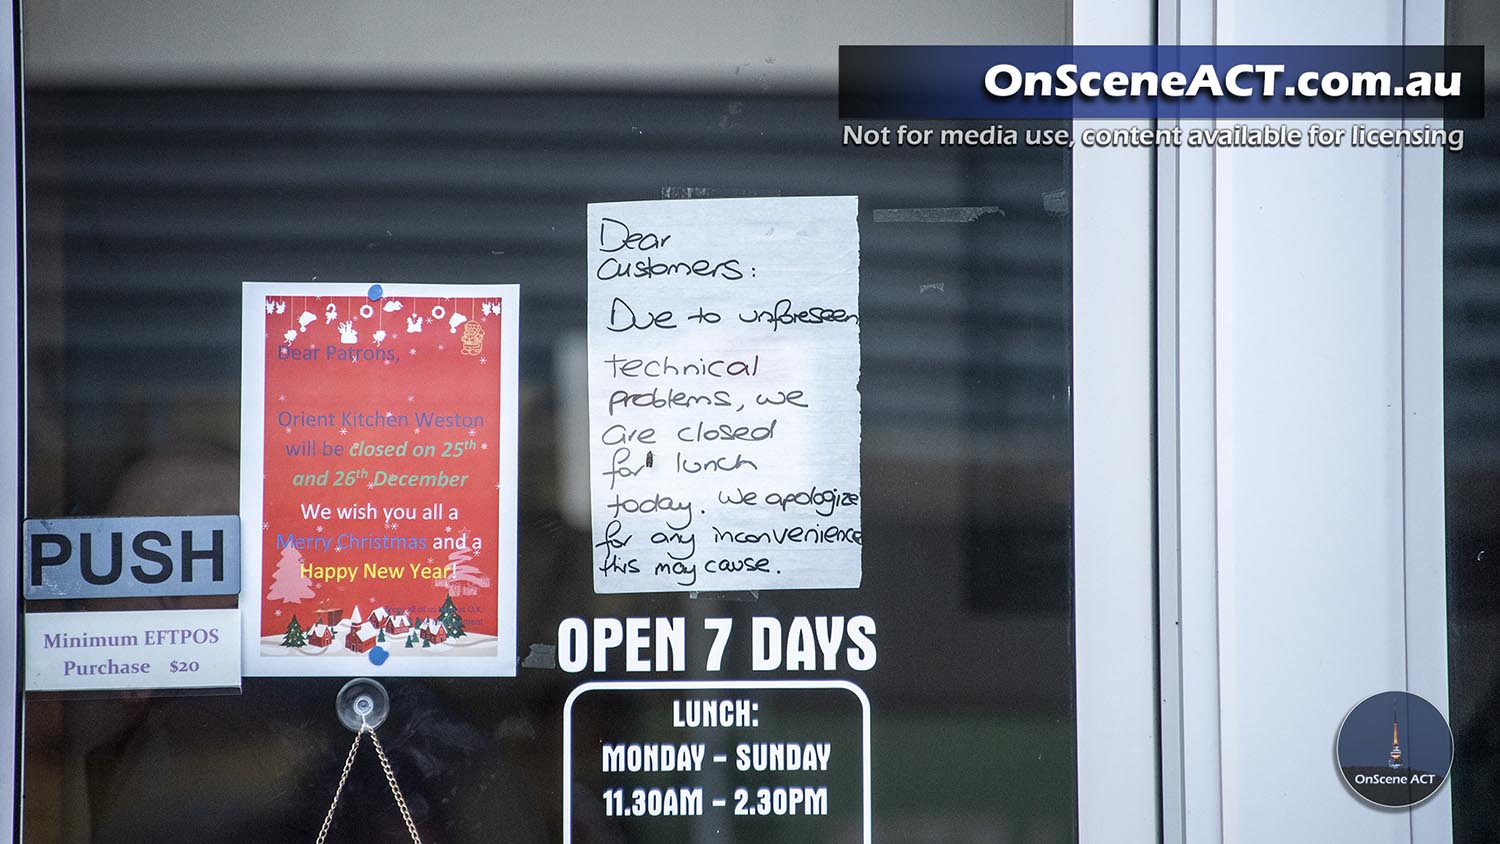 OnSceneACT.com.au
Not for media use, content available for licensing
Dear
Customers:
Due to unforeseen
technical
problems, we
are closed
for lunch
today. We apologize
for any inconvenience
this may cause.
Dear Patrons,
Orient Kitchen Weston
will be closed on 25th
and 26th December
We wish you all a
Merry Christmas and a
Happy New Year!
PUSH
Minimum EFTPOS
Purchase $20
OPEN 7 DAYS
LUNCH:
MONDAY - SUNDAY
11.30AM - 2.30PM
OnScene ACT